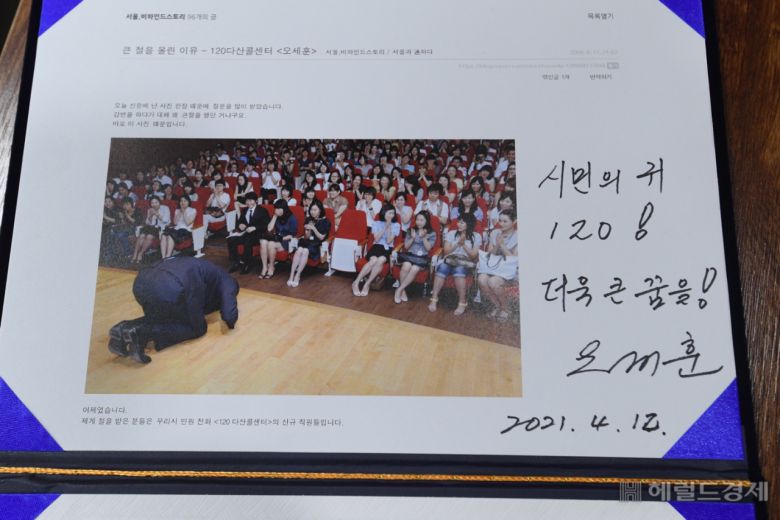 서울,비하인드스토리 56개의 글
목록열기
큰 절을 올린 이유 - 120다산콜센터 <오세훈>
서울,비하인드스토리 / 서울과 通하다
엮인글 1개
번역하기
오늘 신문에 난 사진 한장 때문에 질문을 많이 받았습니다.
강연을 하다가 대체 왜 큰절을 했던 거냐구요.
바로 이 사진 때문입니다.
시민의 귀
120 !
더욱 큰 꿈을!
오세훈
2021. 4. 12.
어제였습니다.
제게 절을 받은 분들은 우리시 민원 전화 <120 다산콜센터>의 신규 직원들입니다.
헤럴드경제